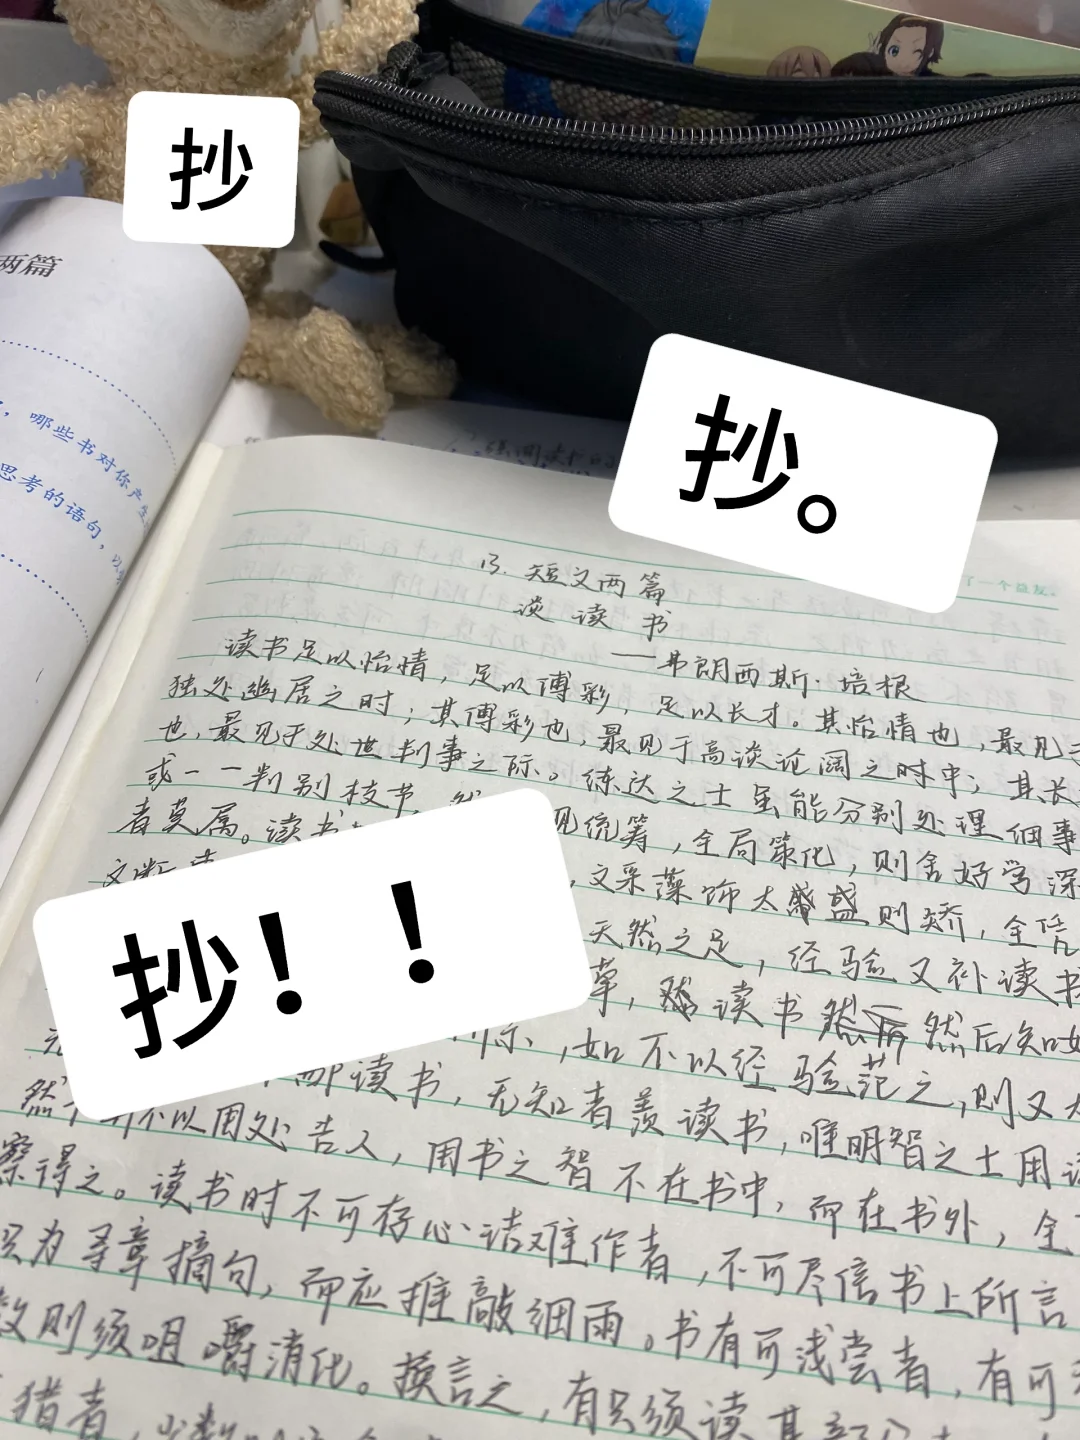 抄
两篇
哪些书对你产生
思考的语句，
抄。
了一个益友。
13. 短文两篇
谈读书
——弗朗西斯·培根
读书足以怡情，足以傅彩，足以长才。其怡情也，最见于
独处幽居之时；其傅彩也，最见于高谈论阔之时中；其长
也，最见于处世判事之际。练达之士虽能分别处理细事
或一一判别枝节，然 观统筹，全局策化，则舍好学深
者莫属。读书 ，文采藻饰太盛则矫，全凭
文断 天然之足，经验又补读书
抄！！
草，读书然后知
所示，如不以经验范之，则又大
读书，无知者羡读书，唯明智之士用读
然 并不以用处告人，用书之智不在书中，而在书外，全
察得之。读书时不可存心诘难作者，不可尽信书上所言
只为寻章摘句，而应推敲细雨。书有可浅尝者，有可
数则须咀嚼消化。换言之，有只须读其部分
猎者，少数